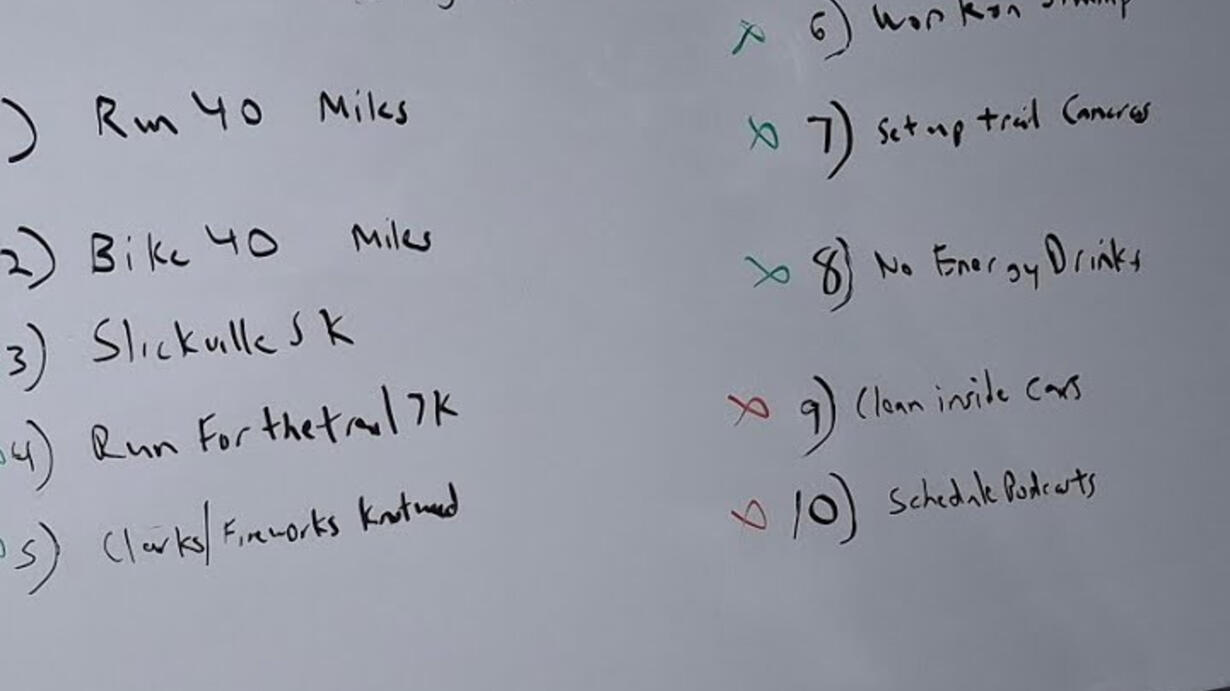 ) Run 40 Miles
2) Bike 40 Miles
3) Slickville 5K
4) Run For the trail 7K
5) Clarks/Fireworks Knotweed
6) Work on
7) Set up trail Cameras
8) No Energy Drinks
9) Clean inside Cars
10) Schedule Podcasts